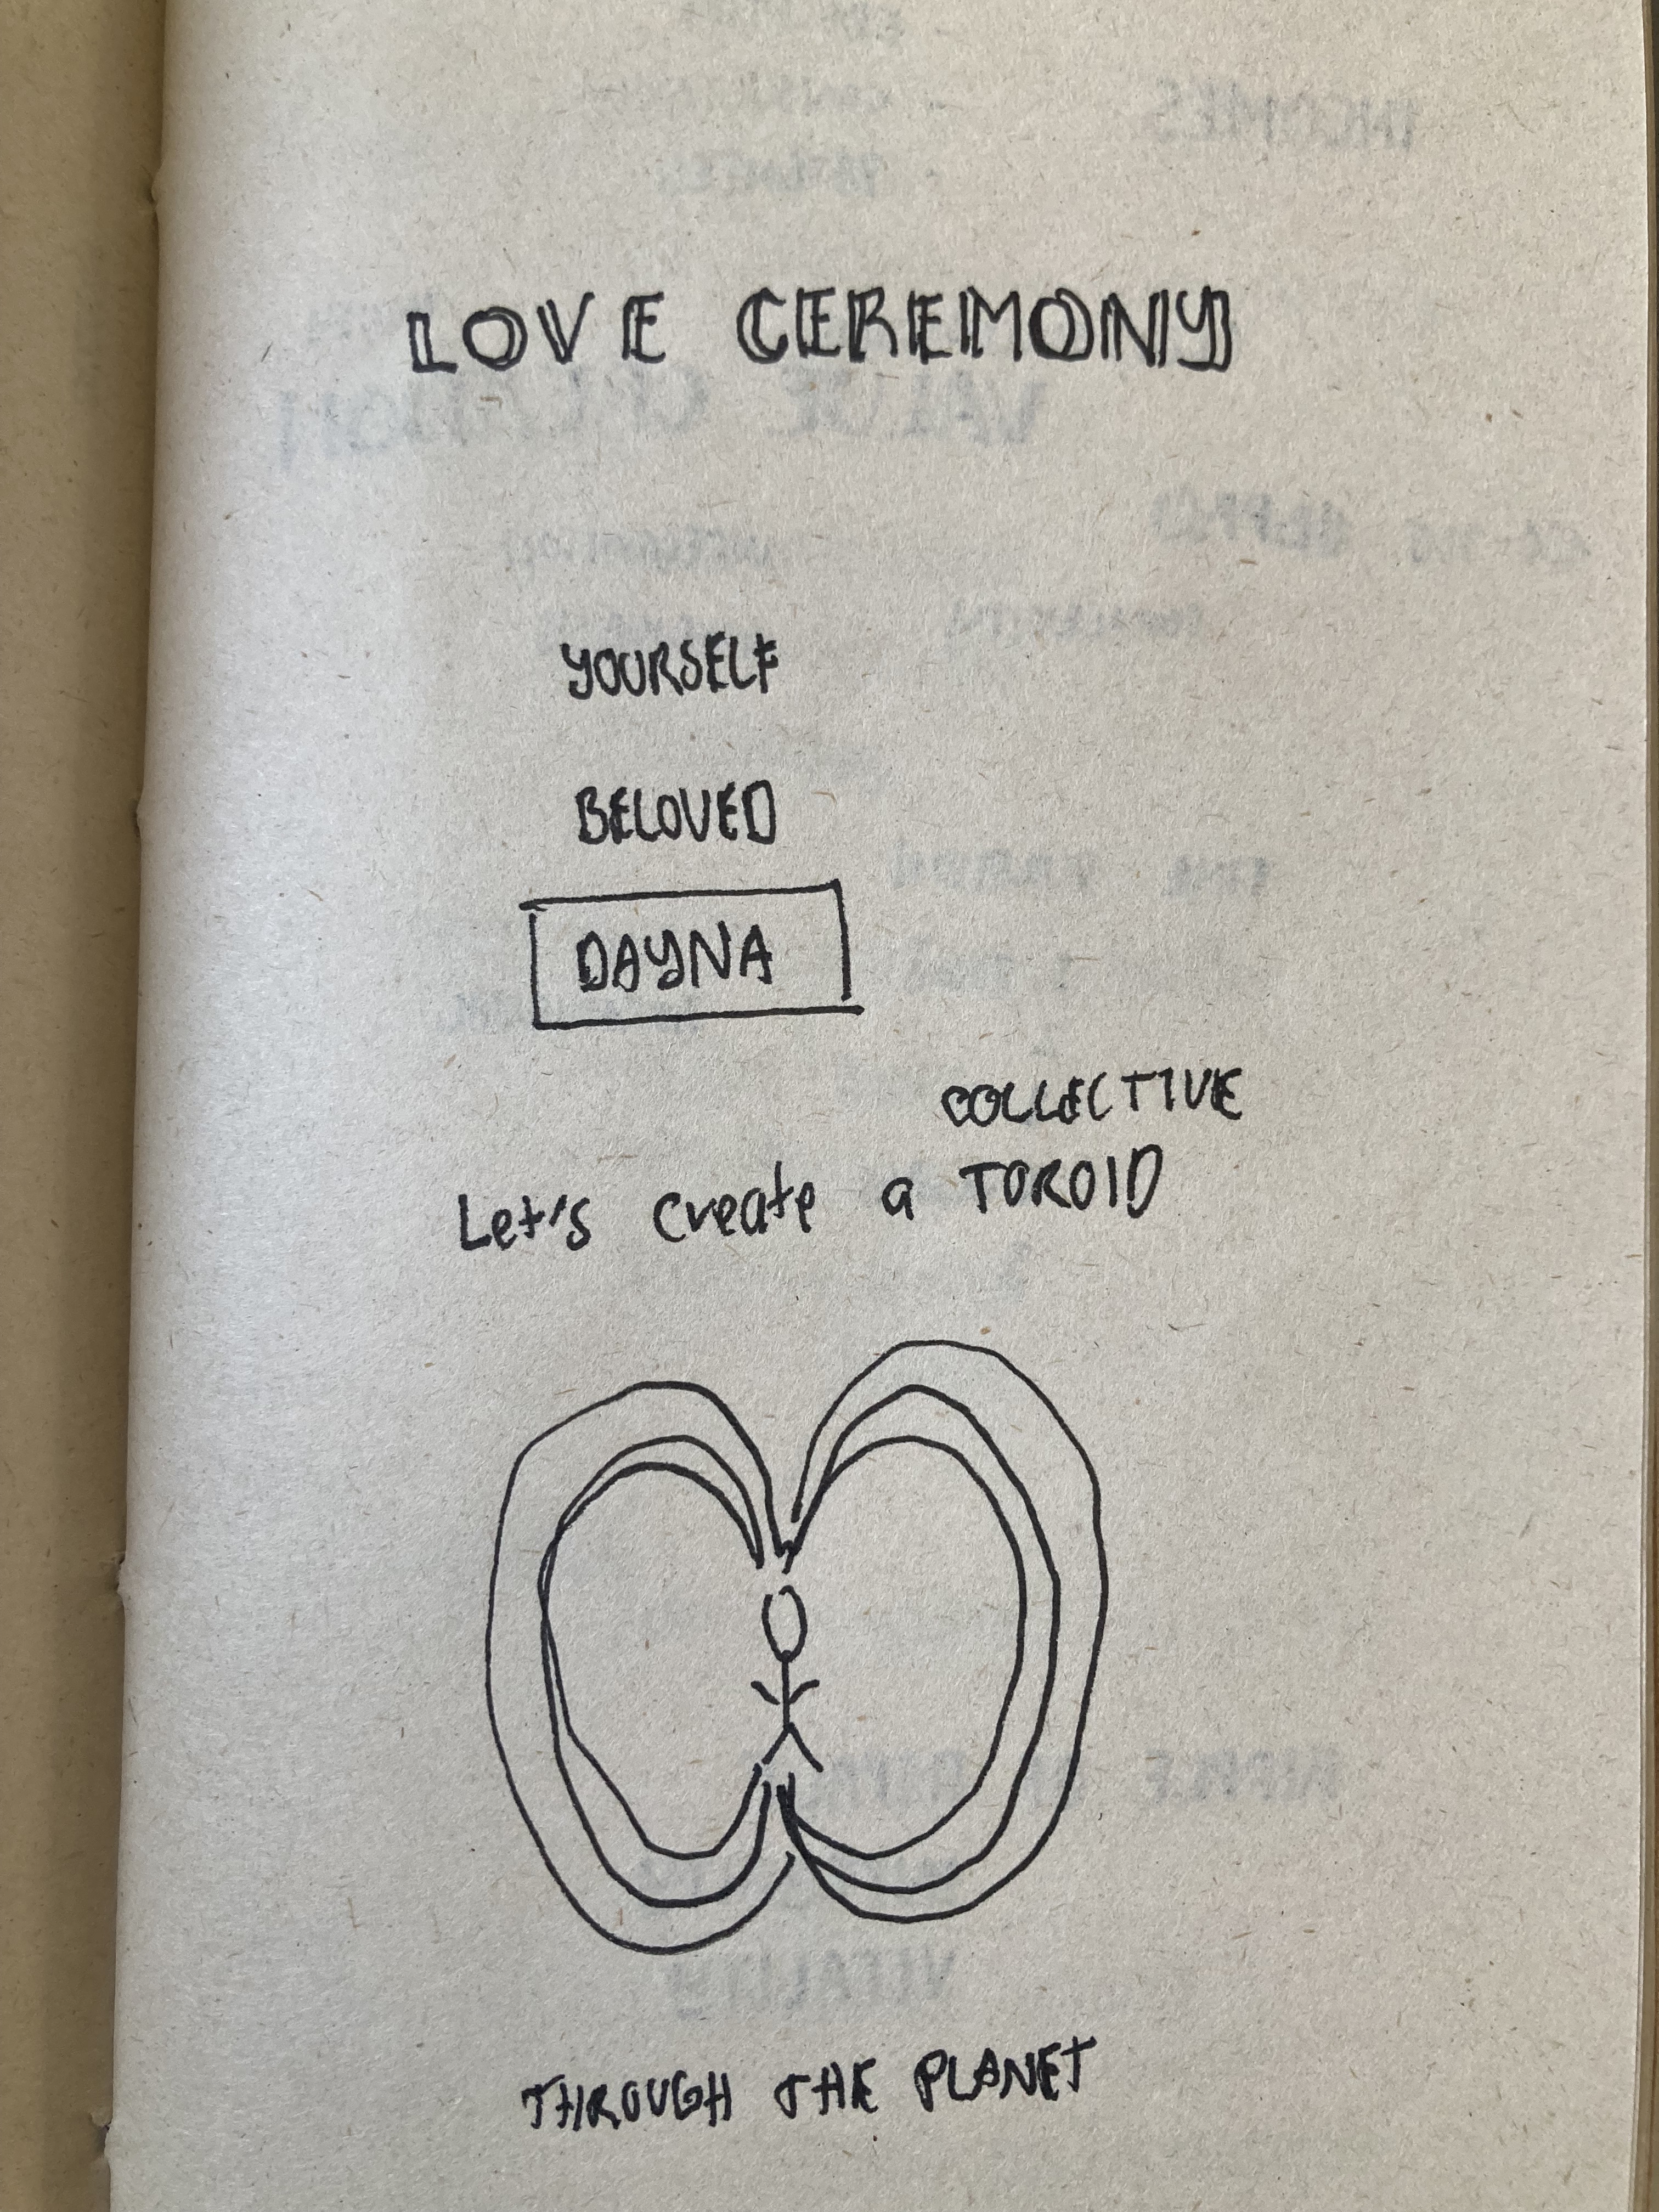 LOVE CEREMONY
YOURSELF
BELOVED
DAYNA
COLLECTIVE
Let's create a TOROID
THROUGH THE PLANET